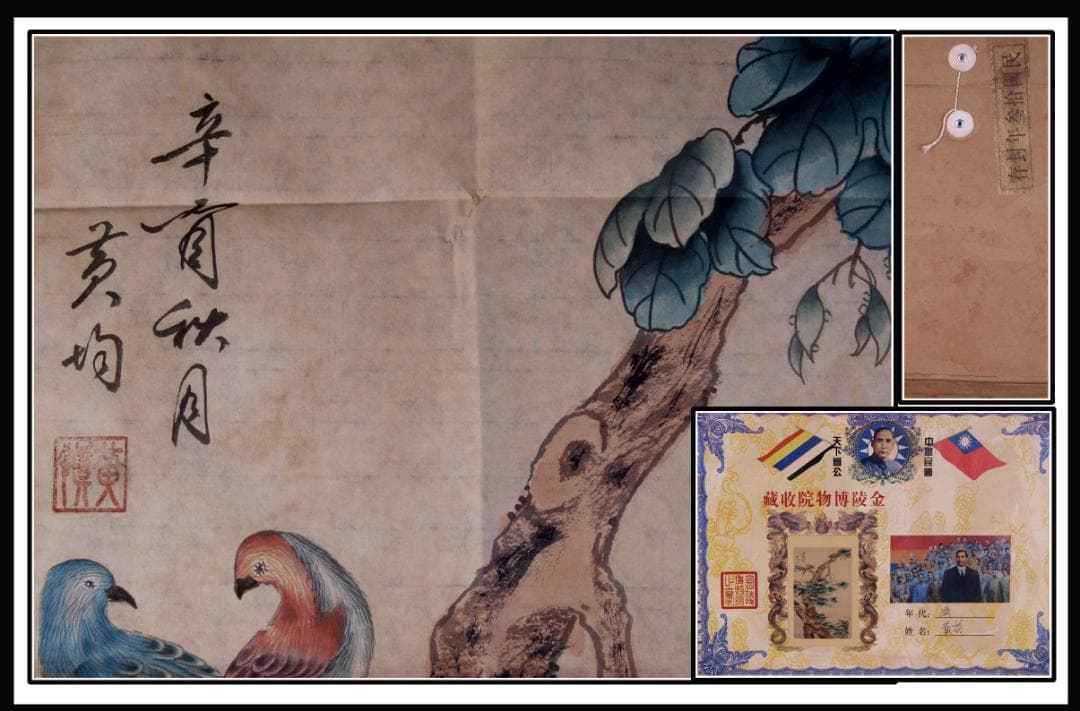 辛酉秋月
黄均
民國拾叁年封存
中華民國
天下爲公
金陵博物院收藏
年代:
姓名: